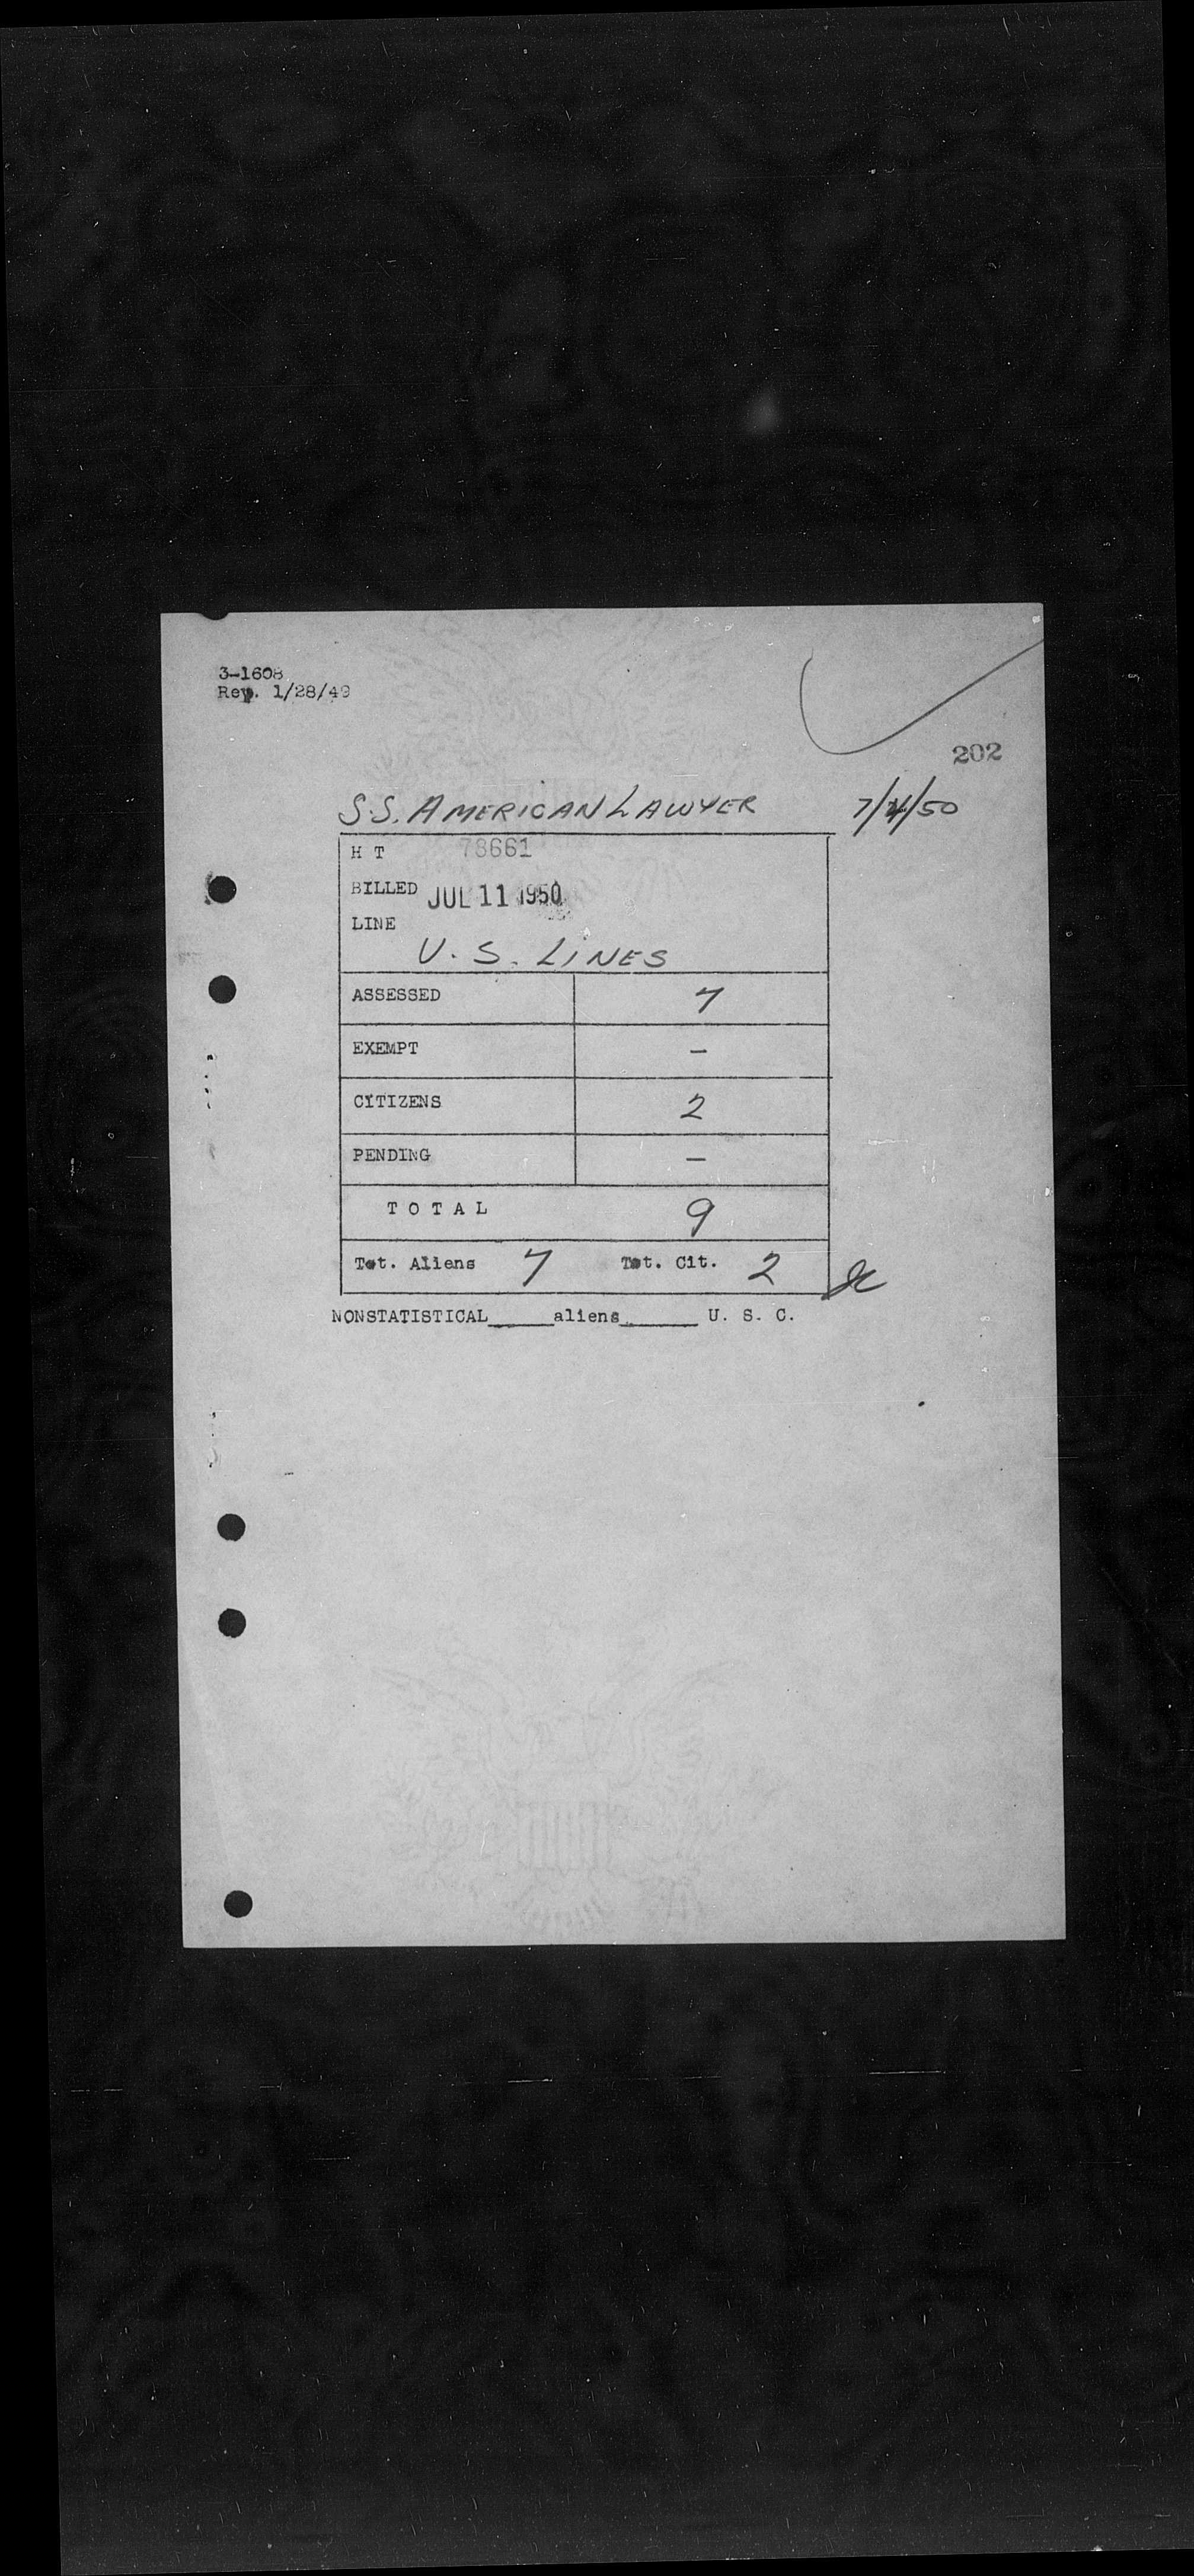 3-1608
Rev. 1/28/49
202
S.S. AMERICAN LAWYER 7/4/50
H T 78661
BILLED JUL 11 1950
LINE
U.S. LINES
ASSESSED 7
EXEMPT —
CITIZENS 2
PENDING —
TOTAL 9
Tot. Aliens 7 Tot. Cit. 2
NONSTATISTICAL_____aliens______ U. S. C.